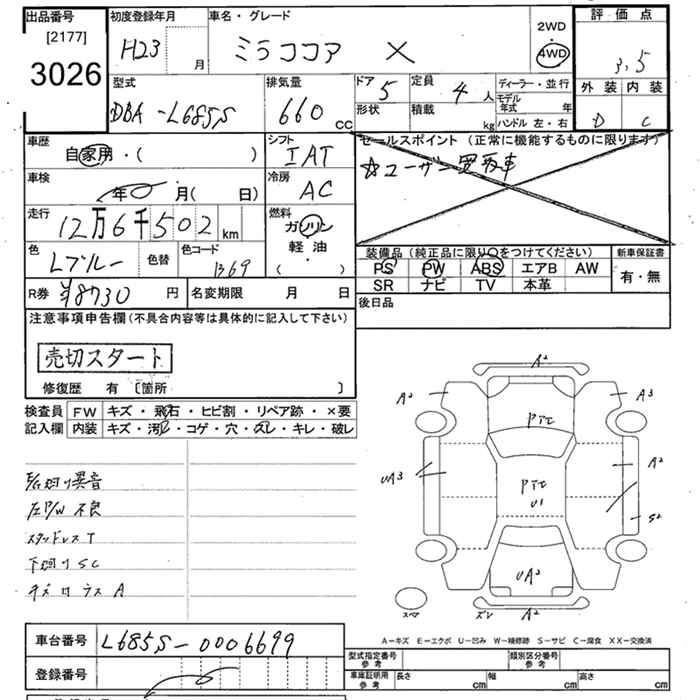 出品番号
[2177]
3026
初度登録年月
H23
月
車名・グレード
ミラココア X
2WD
・
4WD
評価点
3.5
外装 内装
D C
型式
DBA-L685S
排気量
660 cc
ドア
5
定員
4 人
形状
積載
kg
ディーラー・並行
モデル年式 年
ハンドル 左・右
車歴
自家用・( )
シフト
IAT
セールスポイント (正常に機能するものに限ります)
☆ユーザー買取車
車検
年 月( 日)
冷房
AC
走行
12万6千502 km
燃料
ガソリン
軽油
・
( )
色
Lブルー
色替
色コード
B69
装備品(純正品に限り○をつけてください)
PS PW ABS エアB AW
SR ナビ TV 本革
新車保証書
有・無
R券 ¥8730 円
名変期限 月 日
後日品
注意事項申告欄(不具合内容等は具体的に記入して下さい)
売切スタート
修復歴 有〔箇所 〕
検査員記入欄
FW キズ・飛石・ヒビ割・リペア跡・×要
内装 キズ・汚レ・コゲ・穴・スレ・キレ・破レ
左PW 不良
スタッドレスT
下廻りSC
A2
A2
A3
Pてc
UA3
A2
Pてc
U1
S2
UA3
スペア
ズレ
A2
A-キズ E-エクボ U-凹み W-補修跡 S-サビ C-腐食 XX-交換済
車台番号 L685S-0006699
登録番号
型式指定番号 参考
類別区分番号 参考
車庫証明用 参考
長さ cm
幅 cm
高さ cm